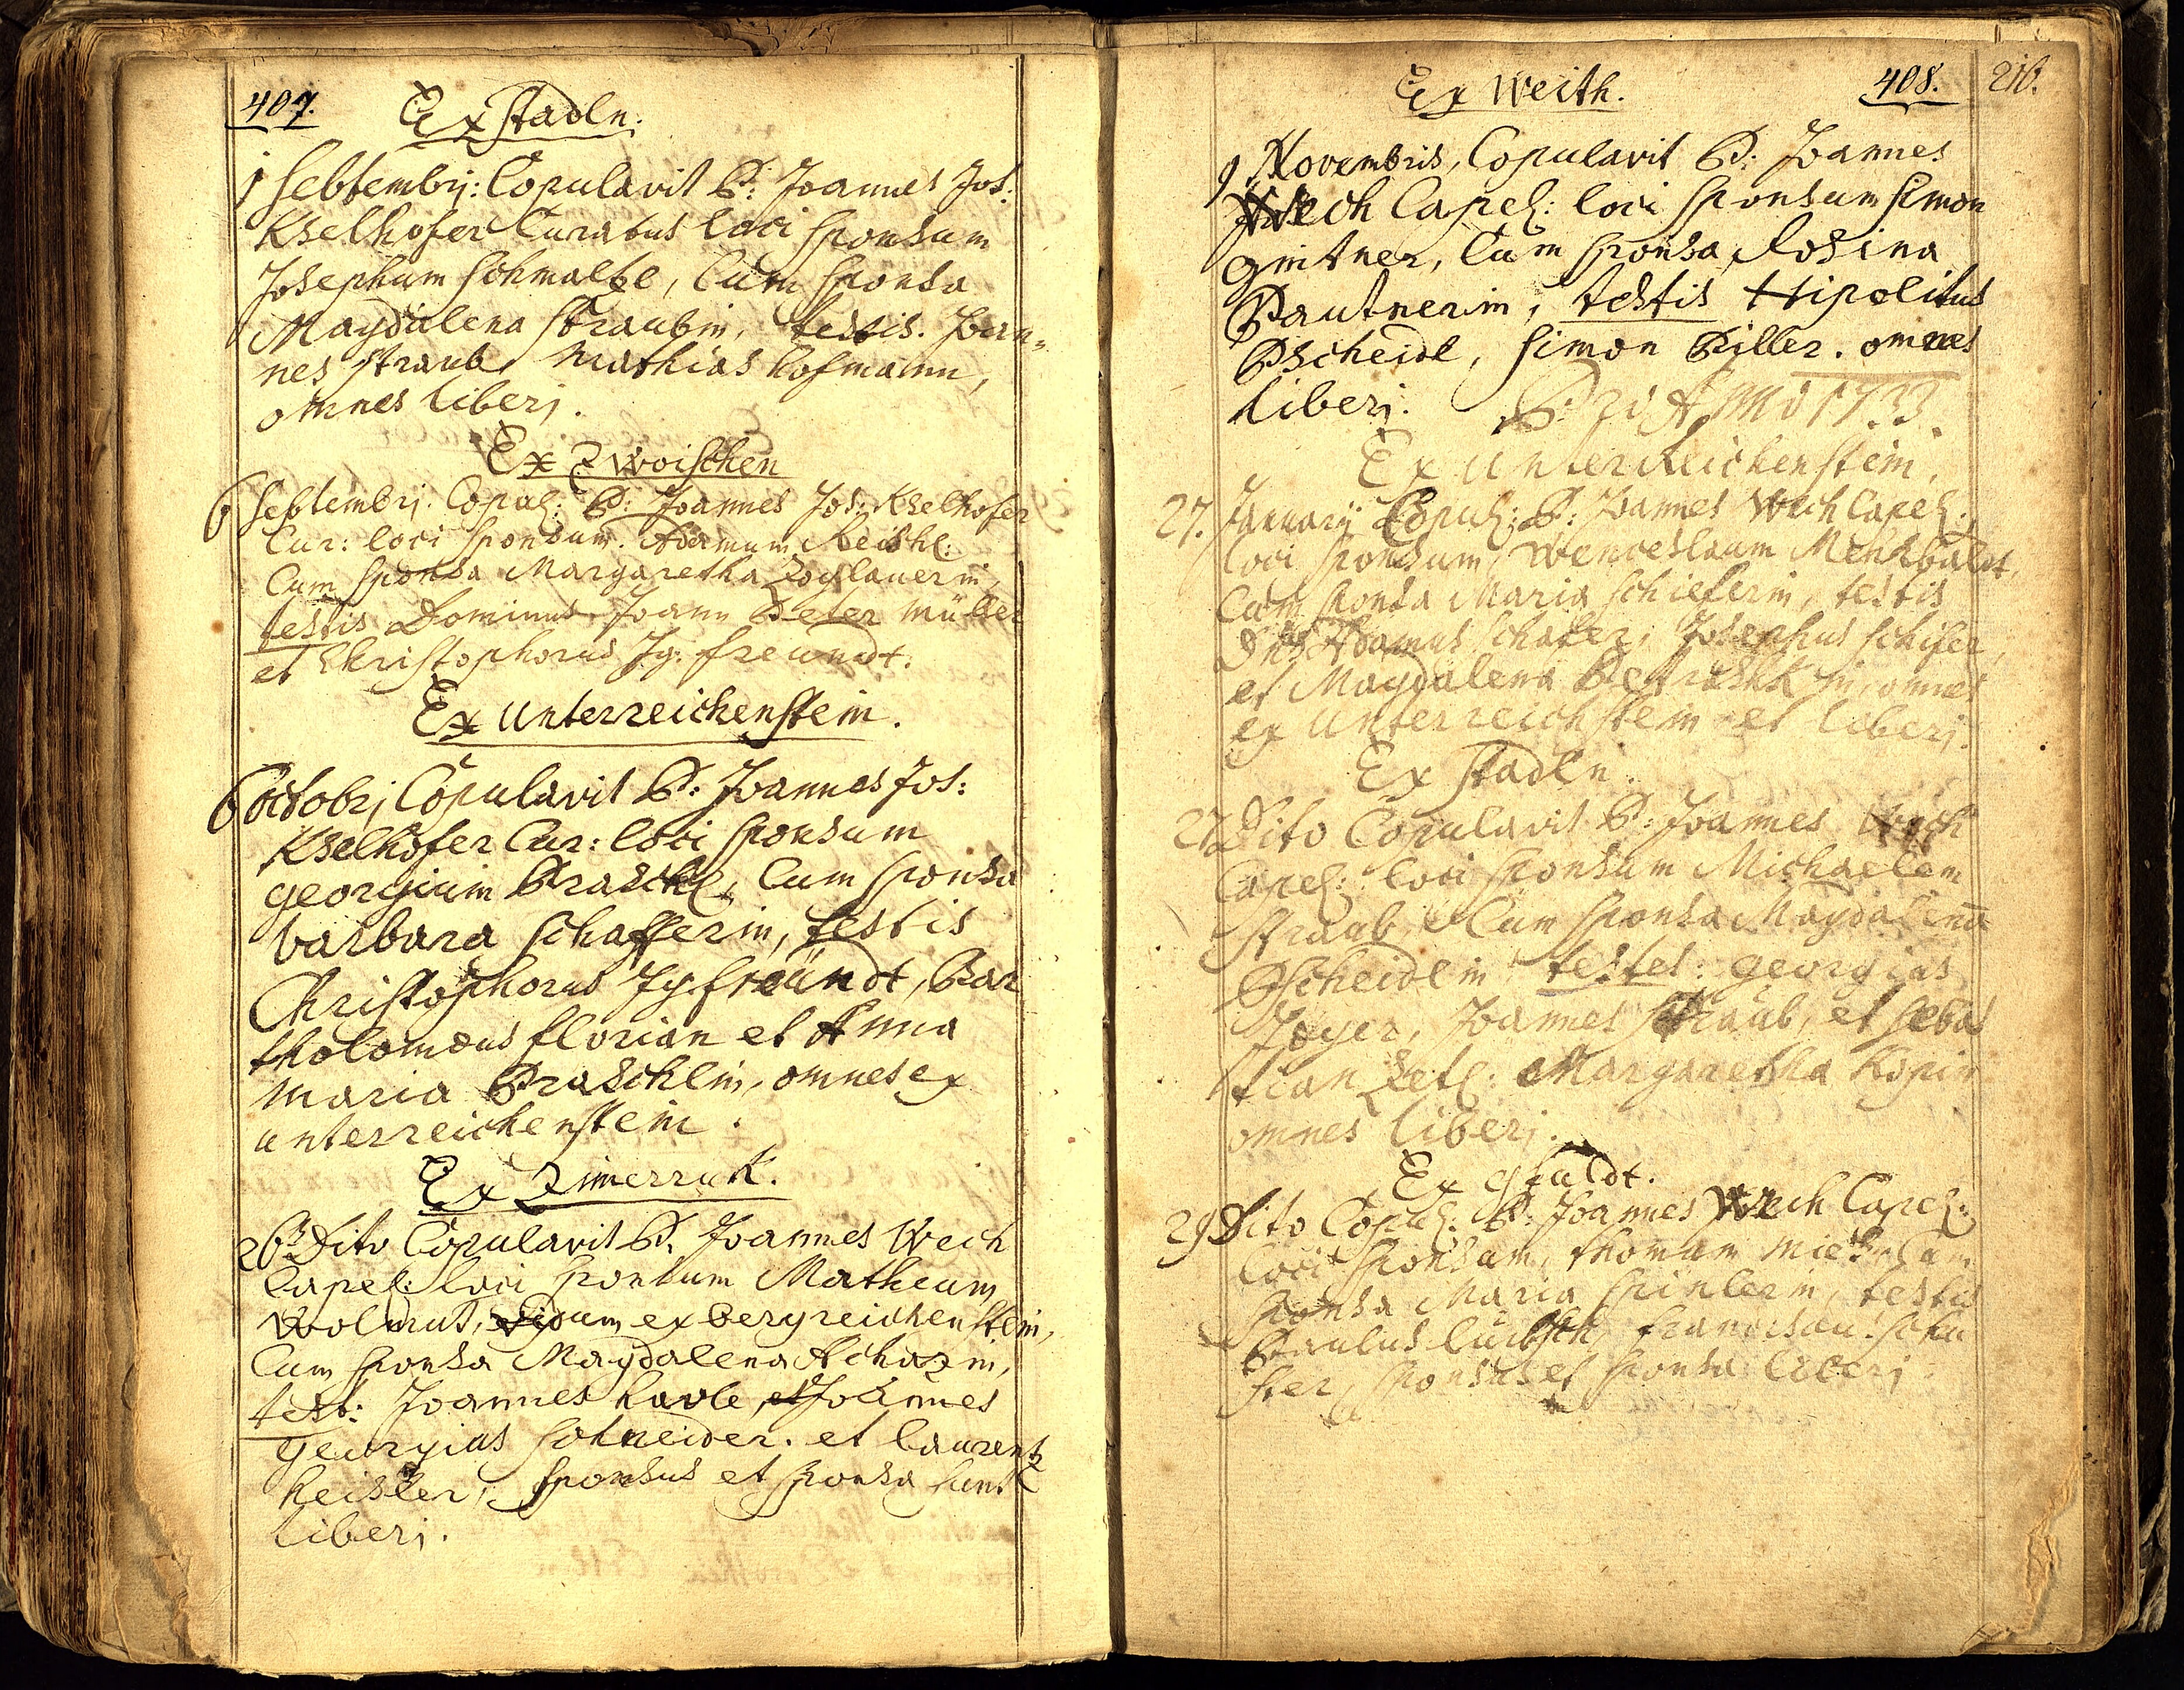 407.
Ex Stadln.
1 Septembrj: Copulavit P: Joannes Jos:
Kselhofer Curatus loci Sponsum
Josephum Schmaltzl, Cum Sponsa
Magdalena Straubin, testis. Joan-
nes Straub, Mathias hofmann,
omnes liberj.
Ex Zwoischen
6 Septembrj. Copul: P: Joannes Jos: Kselhofer
Cur: loci Sponsum. Adamum Reischl:
Cum Sponsa Margaretha Zoglauerin,
testis Dominus Joann Peter Müller
et Christophorus Jg. freundt.
Ex Unterreichenstein.
6 Octobrj Copulavit P: Joannes Jos:
Kselhofer Cur: loci Sponsum
georgium Praschl, Cum Sponsa
barbara Schafferin, testis
Christophorus Jg. freündt, Bar
tholomæus florian et Anna
Maria Praschlin, omnes ex
unterreichenstein.
Ex Zimerruk.
26 Dito Copulavit P. Joannes Wech
Capel: loci Sponsum Matheum
Wolmut, ex bergreichenstein,
Cum Sponsa Magdalena Achazin,
test: Joannes havle, et Joannes
georgius Schneider. et laurentz
heisler, Sponsus et Sponsa sunt
liberj.
408.
216.
Ex Weith.
9 Novembris, Copulavit P: Joannes
Wech Capel: loci Sponsum Simon
gintner, Cum Sponsa Rosina
Pautnerin, testis Hipolitus
Pscheidl, Simon Piller. omnes
liberj.
Pro Anno 1733.
Ex Unterreichenstein.
27. January Copul: P: Joannes Wech Capel:
loci Sponsum Wenceslaum Mehlbalet,
Cum Sponsa Maria Schieferin, testis
Dns Adamus Schafer, Josephus Schifer,
et Magdalena in, omnes
ex Unterreichstein et liberj.
Ex Stadln.
27 Dito Copulavit P: Joannes Wech
Capel: loci Sponsum Michaelem
Straub, Cum Sponsa Magdalena
Pscheidlin testes: georgius
Jeger, Joannes Straub, et Sebas
tian Zetl: Margaretha Kopin
omnes liberj.
Ex gfildt.
29 Dito Copul: P: Joannes Wech Capel:
loci Sponsum, thomam Cum
Sponsa Maria Spinlerin, testis
Paulus Schu
ster, Sponsus et Sponsa liberj